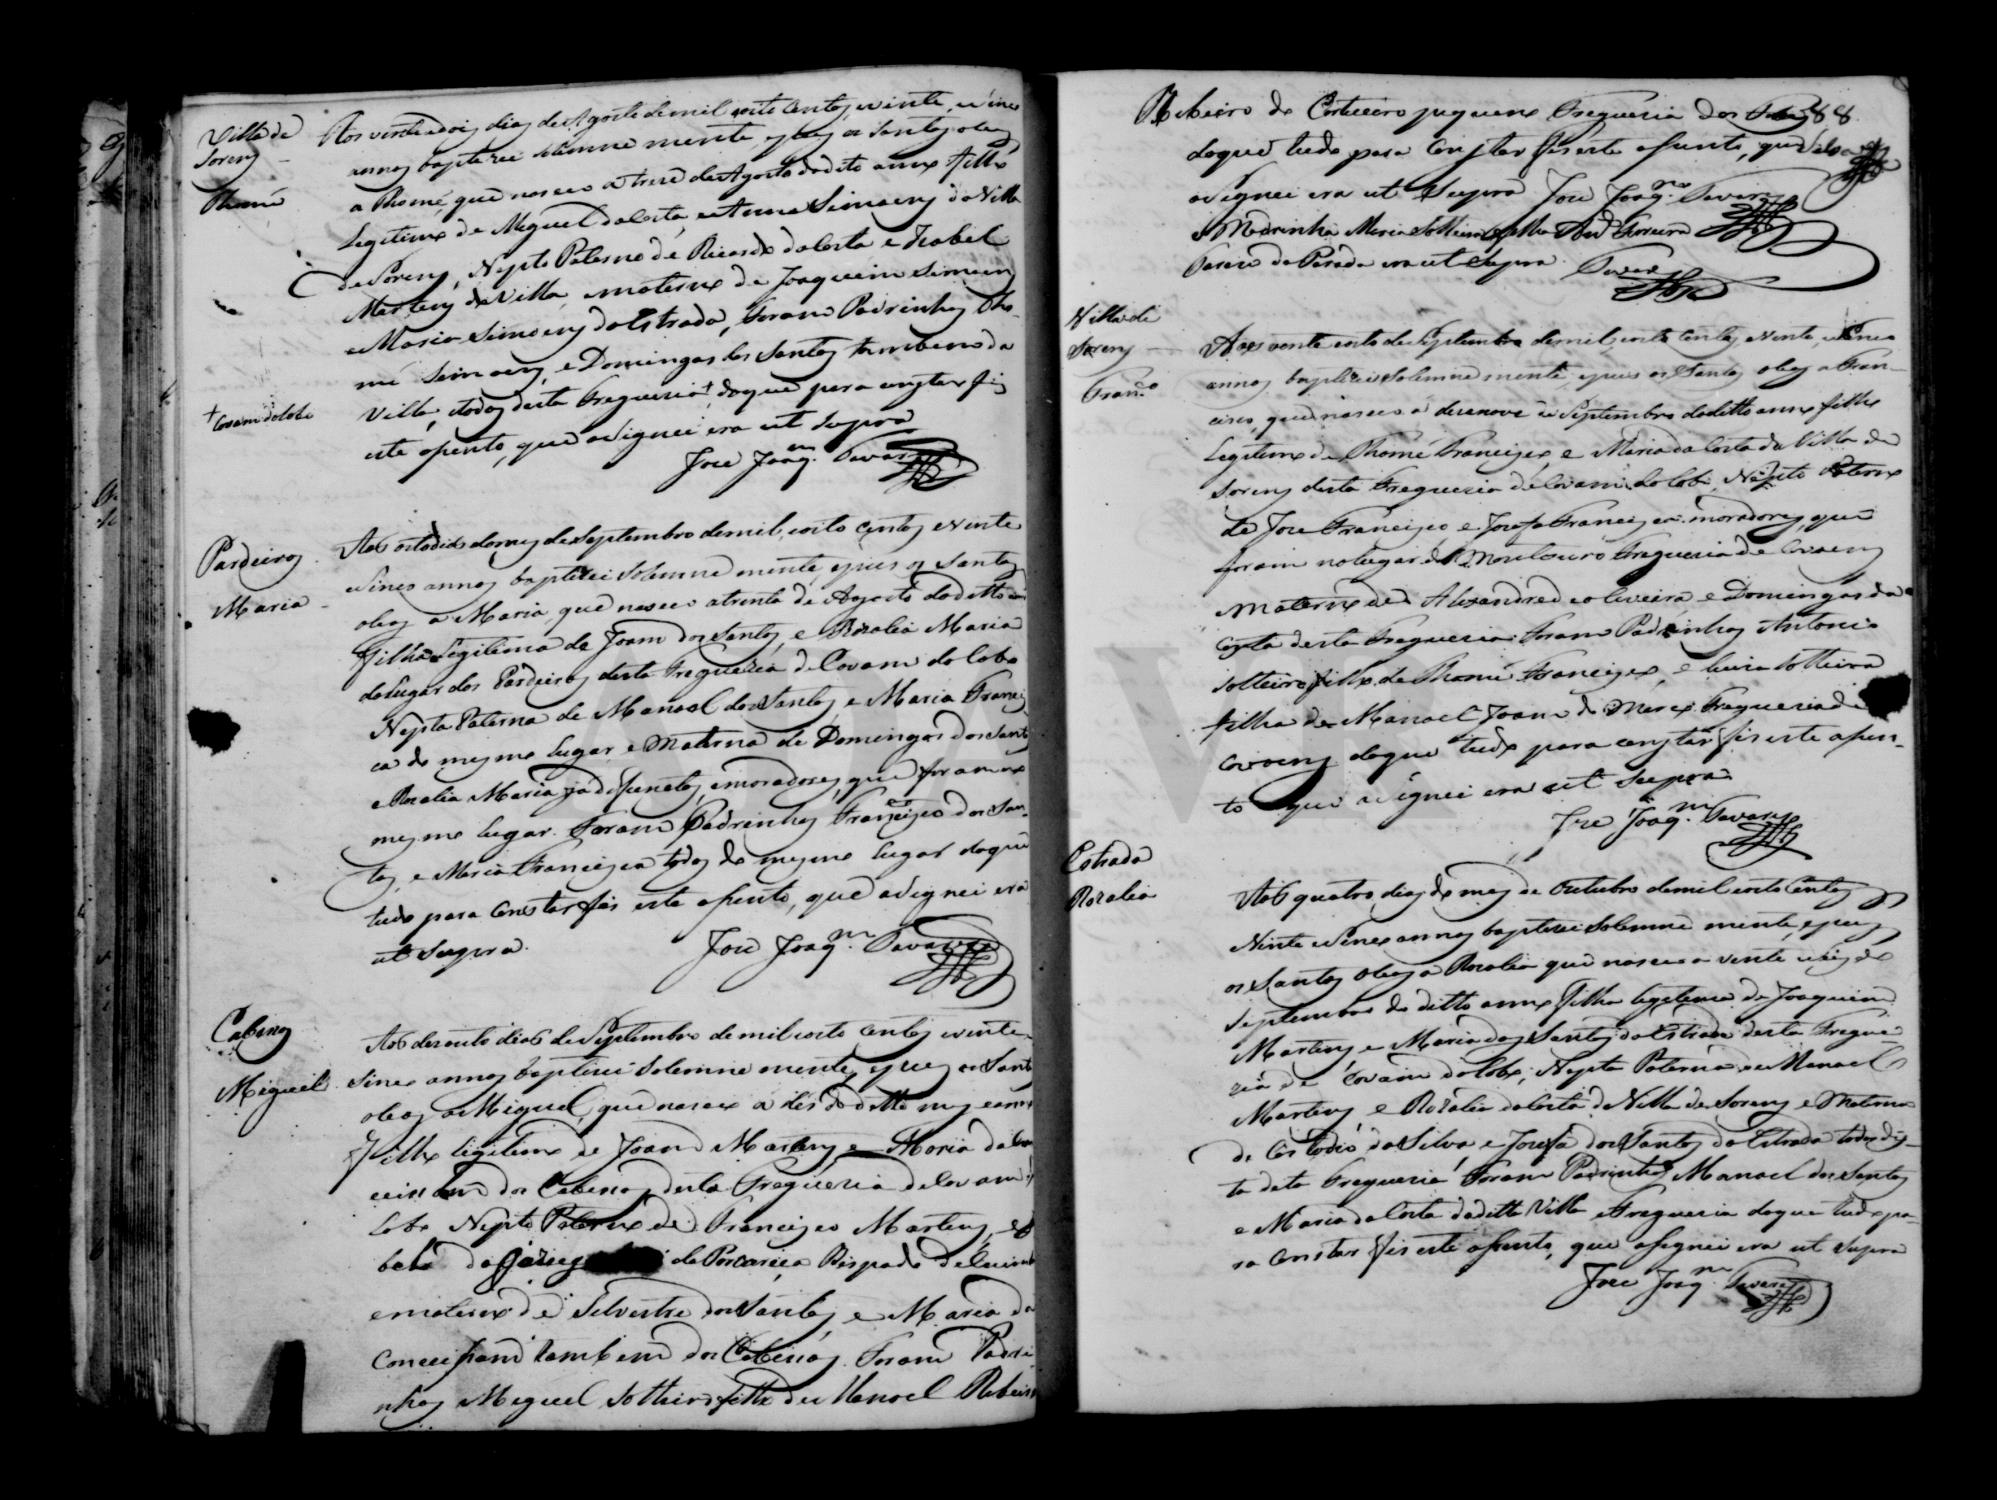 Villa de
Soreny
Thomé
Aos vinte e dois dias de Agosto de mil oito centos, e vinte, e sinco
annos baptizei solemne mente, e puz os santos oleos
a Thomé, que nasceo a treze de Agosto do dito anno filho
Legitimo de Miguel da Costa, e Anna Simoens da Villa
de Soreny, Neptto Paterno de Ricardo da Costa e Izabel
Martins da Villa, e materno de Joaquim Simoens
e Maria Simoens da Estrada, foram Padrinhos Tho-
mé Simoens, e Domingas dos Santos tambem da
+ Covam do lobo
Villa, e todos desta Freguezia, do que para constar fiz
este asento, que asignei era ut supra
Joze Joaq.m Tavares
Pardeiros
Maria
Aos oito dias do mes de Septembro de mil, oito centos e vinte
e sinco annos baptizei solemne mente, e puis os santos
oleos a Maria, que nasceo a trinta de Agosto do ditto anno
filha Legitima de Joam dos Santos, e Rozalia Maria
do lugar dos Pardeiros desta Freguezia de Covam do lobo
Nepta Paterna de Manoel dos Santos e Maria Francis
ca do mesmo lugar, e Materna de Domingos dos Santos
e Rozalia Maria ja defuntos, e moradores, que foram no
mesmo lugar. Foram Padrinhos Francisco dos San-
tos, e Maria Francisca todos do mesmo lugar do que
tudo para constar fis este asento, que asignei era
ut supra.
Joze Joaq.m Tavares
Cabesas
Miguel
Aos dezoito dias de Septembro de mil oito centos e vinte
sinco annos baptizei solemne mente, e puz os santos
oleos a Miguel, que nasceo a des do ditto mes e anno
Filho legitimo de Joam Martins e Maria da Con
ceisam dos Cabesas desta Freguezia de Covam do
Lobo Neptto Paterno de Francisco Martins, e
da de Porcariça Bispado de Coimbra
e materno de Silvestre dos Santos, e Maria da
Conceisam tambem dos Cabesas. Foram Padri-
nhos Miguel Solteiro filho de Manoel Ribeiro
88
Ribeiro do Corticeiro pequeno Freguezia dos
do que tudo para constar fis este asento, que
asignei era ut supra Joze Joaq.m Tavares
Madrinha Maria Solteira filha
era ut supra. Tavares
Villa de
Soreny
Fran.co
Aos vente e oito de Septembro de mil, oito centos e vente, e sinco
annos baptizei solemne mente, e puis os Santos oleos a Fran-
cisco, que nasceo a dezanove de Septembro do ditto anno filho
Legitimo de Thomé Francisco, e Maria da Costa da Villa de
Soreny desta Freguezia de Covam do lobo, Neptto Paterno
de Joze Francisco, e Jozefa Francisca moradores, que
foram no lugar de Montouro Freguezia de Covoens
e Materno de Alexandre de oliveira, e Domingas da
Costa desta Freguezia. Foram Padrinhos Antonio
solteiro filho de Thomé Francisco, e Luiza Solteira
filha de Manoel Joam do Freguezia de
Covoens do que tudo para constar fis este asen-
to que asignei era ut supra
Joze Joaq.m Tavares
Estrada
Rozalia
Aos quatro dias do mes de outubro de mil oito centos
Vinte e sinco annos baptizei solemne mente, e puz
os Santos oleos a Rozalia que nasceo a vente e seis de
Septembro do ditto anno Filha legitima de Joaquim
Martins e Maria dos Santos da Estrada desta Fregue-
zia de Covam do lobo, Nepta Paterna de Manoel
Martins, e Rozalia da Costa da Villa de Soreny e Materna
de Custodio da Silva, e Jozefa dos Santos da Estrada todos des-
ta dita Freguezia. Foram Padrinhos Manoel dos Santos
e Maria da Costa da ditta Villa e Freguezia do que tudo pa-
ra constar fis este asento, que asignei era ut supra
Joze Joaq.m Tavares